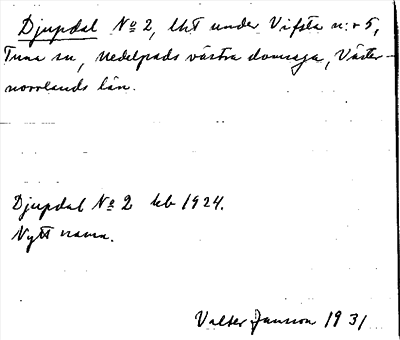 Djupdal No 2, lht under Vifsta n:r 5,
Tuna sn, Medelpads västra domsaga, Väster-
norrlands län.
Djupdal No 2 lb 1924.
Nytt namn.
Valter Jansson 1931